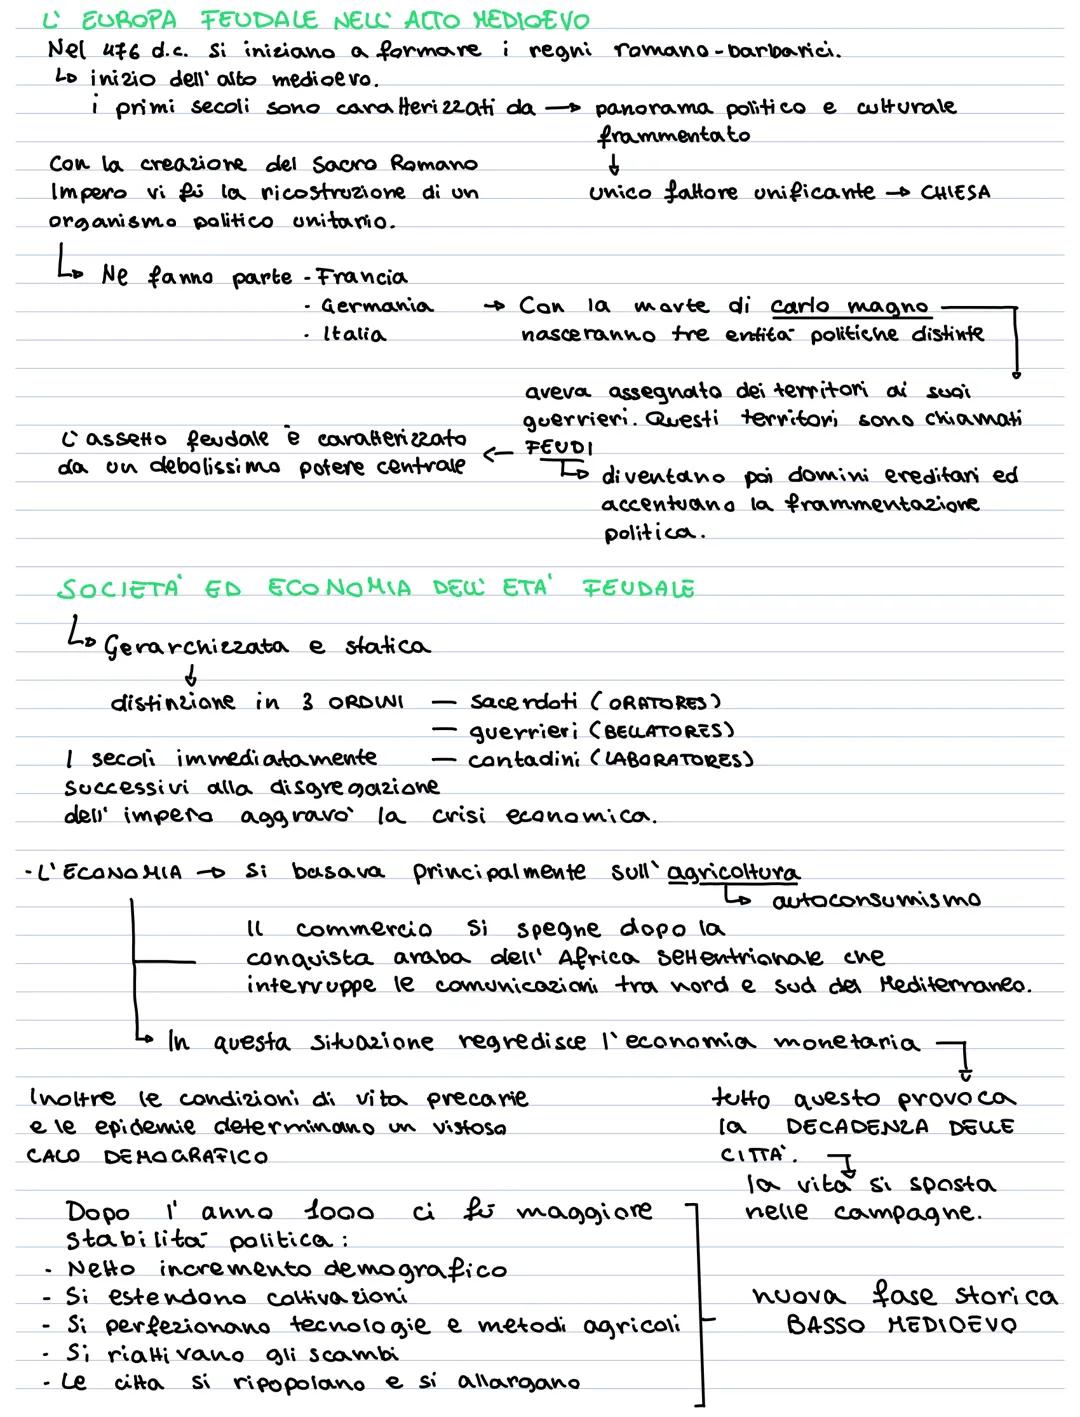 L' EUROPA FEUDALE NELL' ALTO MEDIOEVO
Nel 476 d.c. si iniziano a formare i regni romano-barbarici.
↳ inizio dell' alto medioevo.
i primi secoli sono caratterizzati da → panorama politico e culturale
frammentato
↓
unico fattore unificante → CHIESA
Con la creazione del Sacro Romano
Impero vi fù la ricostruzione di un
organismo politico unitario.
↳ Ne fanno parte - Francia
- Germania
- Italia
→ Con la morte di carlo magno
nasceranno tre entità politiche distinte
aveva assegnato dei territori ai suoi
guerrieri. Questi territori sono chiamati
FEUDI
↳ diventano poi domini ereditari ed
accentuano la frammentazione
politica.
L'assetto feudale è caratterizzato
da un debolissimo potere centrale
SOCIETA' ED ECONOMIA DELL' ETA' FEUDALE
↳ Gerarchizzata e statica
↓
distinzione in 3 ORDINI — sacerdoti (ORATORES)
— guerrieri (BELLATORES)
— contadini (LABORATORES)
I secoli immediatamente
successivi alla disgregazione
dell' impero aggravò la crisi economica.
- L'ECONOMIA → si basava principalmente sull'agricoltura
↳ autoconsumismo
Il commercio si spegne dopo la
conquista araba dell' Africa settentrionale che
interruppe le comunicazioni tra nord e sud del Mediterraneo.
↳ In questa situazione regredisce l'economia monetaria
tutto questo provoca
la DECADENZA DELLE
CITTA'.
la vita si sposta
nelle campagne.
Inoltre le condizioni di vita precarie
e le epidemie determinano un vistoso
CALO DEMOGRAFICO
Dopo l' anno 1000 ci fù maggiore
stabilità politica:
- Netto incremento demografico
- Si estendono coltivazioni
- Si perfezionano tecnologie e metodi agricoli
- Si riattivano gli scambi
- Le citta si ripopolano e si allargano
nuova fase storica
BASSO MEDIOEVO